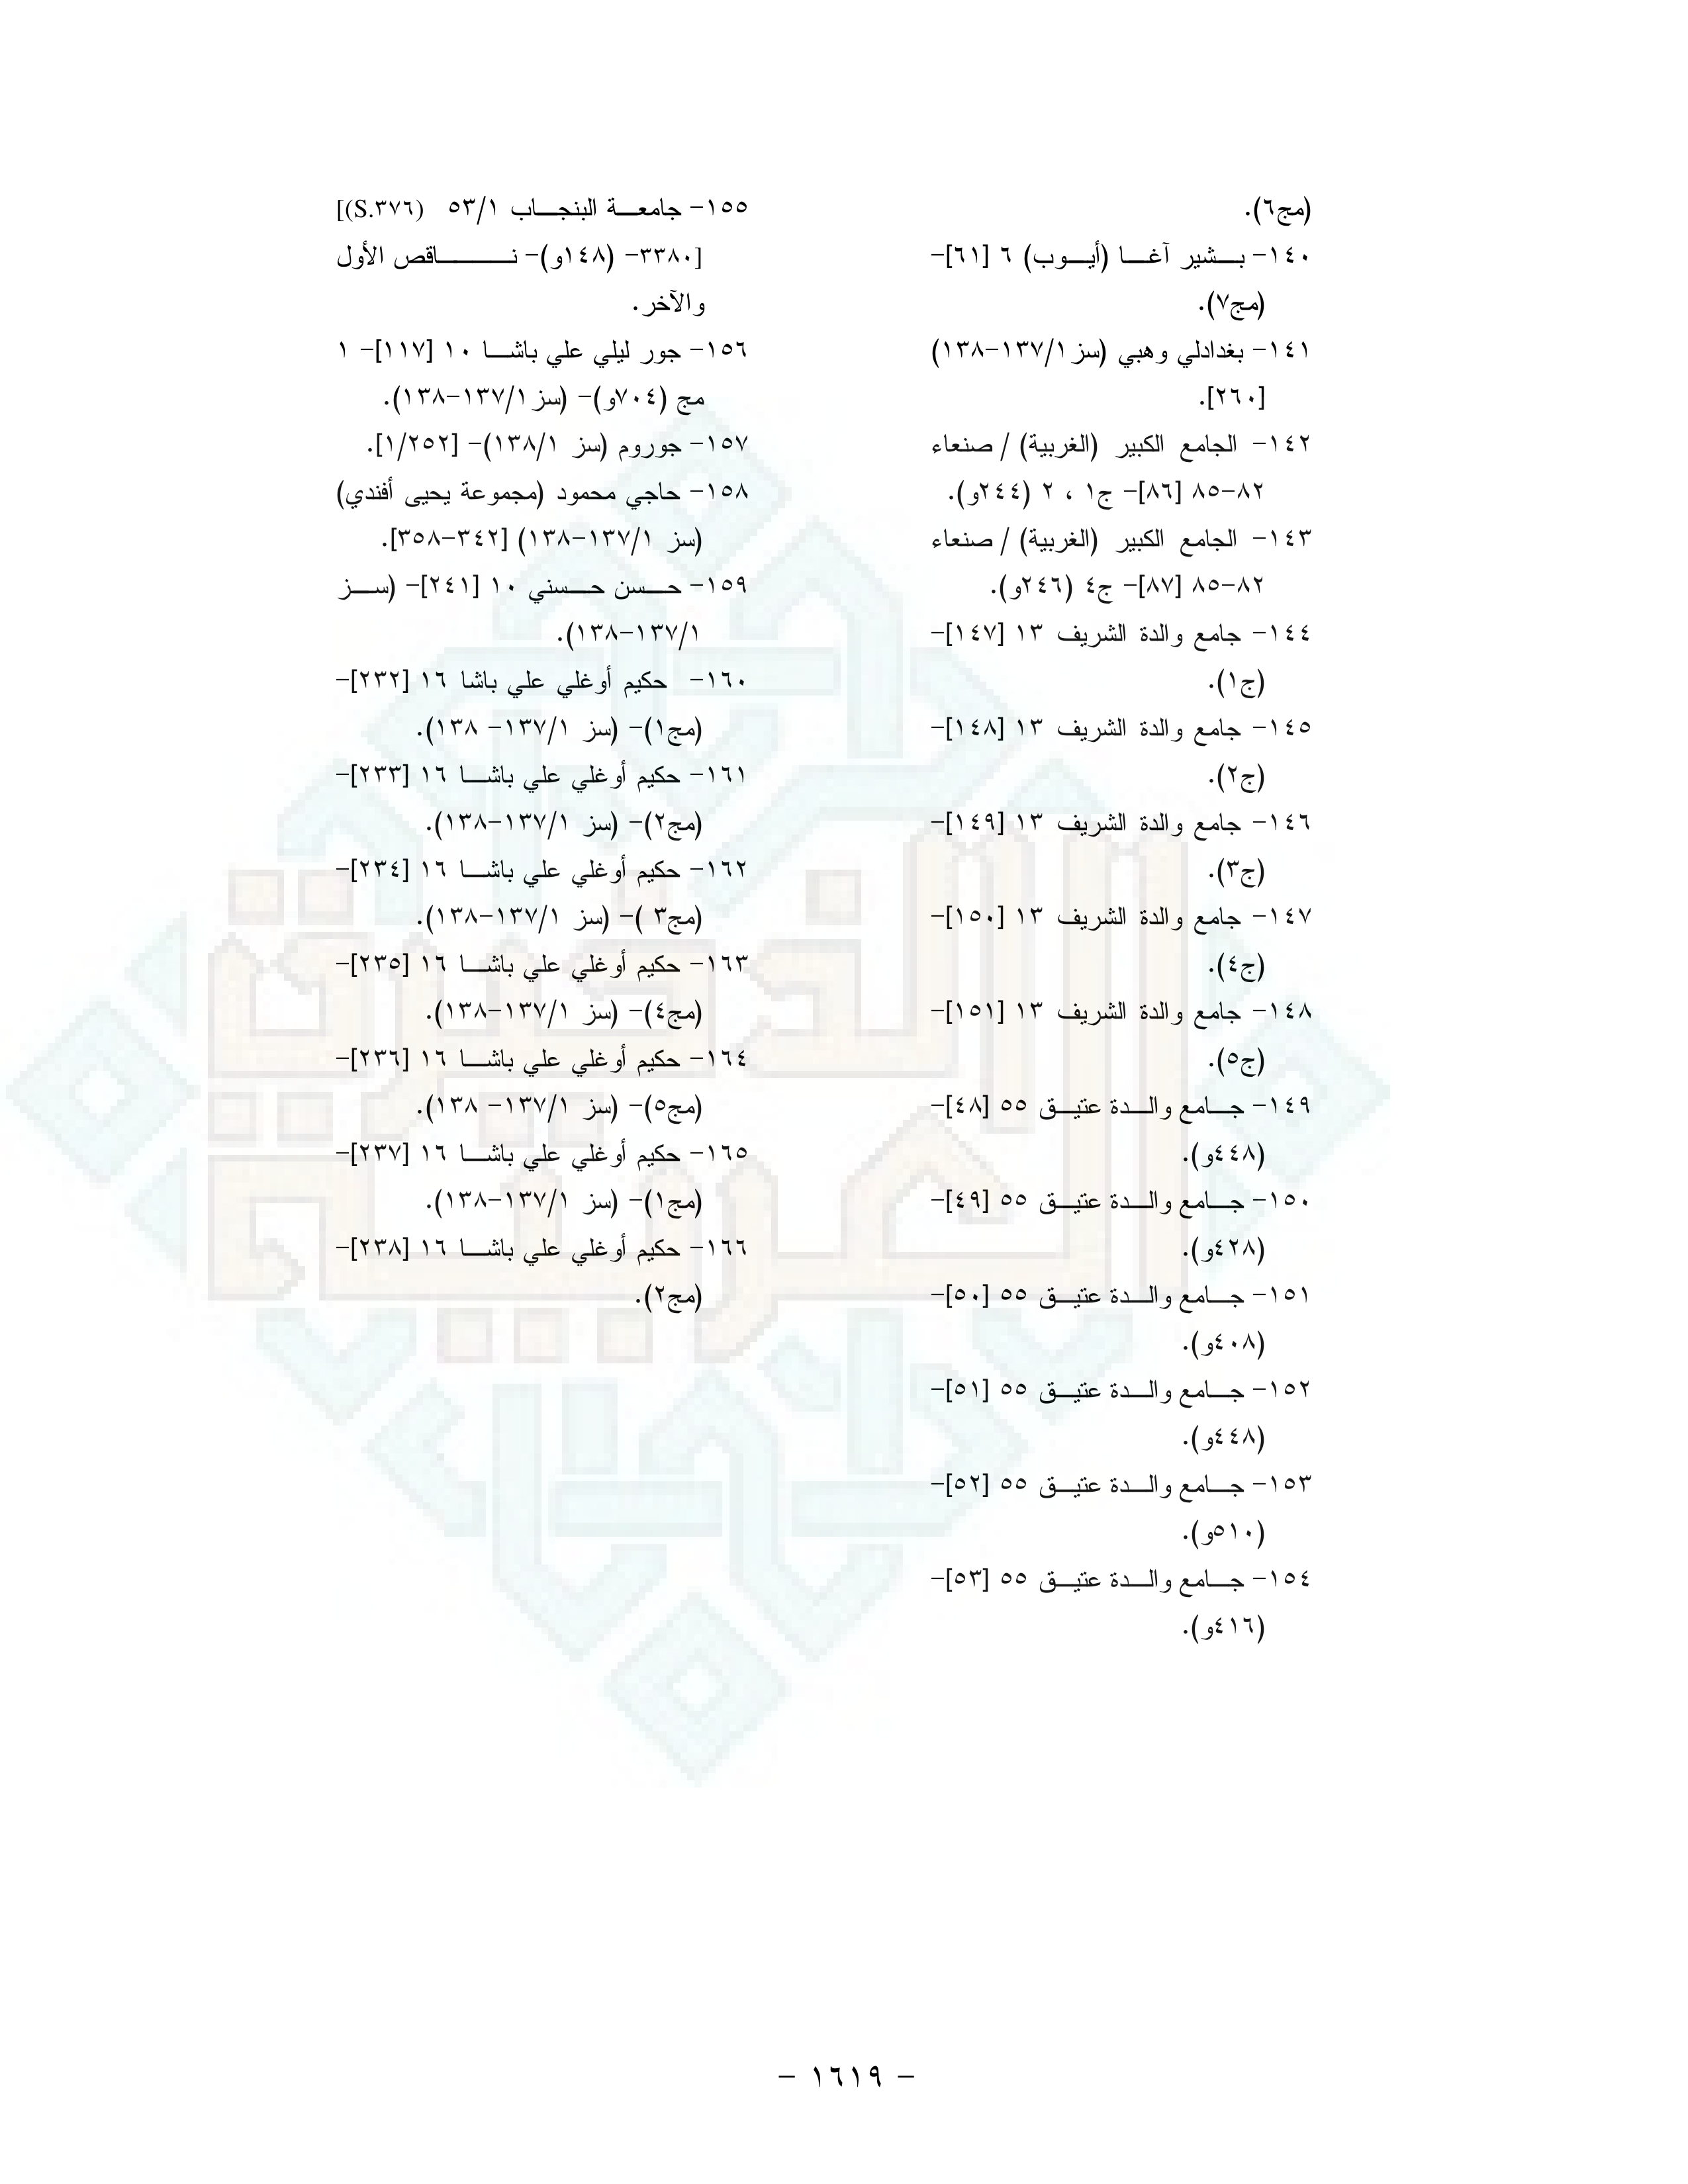 (مج٦).
١٤٠- بـــشير آغـــا (أيـــوب) ٦ [٦١]-
(مج٧).
١٤١- بغدادلي وهبي (سز١٣٧/١-١٣٨)
[٢٦٠].
١٤٢- الجامع الكبير (الغربية) / صنعاء
٨٢-٨٥ [٨٦]- ج١ ، ٢ (٢٤٤و).
١٤٣- الجامع الكبير (الغربية) / صنعاء
٨٢-٨٥ [٨٧]- ج٤ (٢٤٦و).
١٤٤- جامع والدة الشريف ١٣ [١٤٧]-
(ج١).
١٤٥- جامع والدة الشريف ١٣ [١٤٨]-
(ج٢).
١٤٦- جامع والدة الشريف ١٣ [١٤٩]-
(ج٣).
١٤٧- جامع والدة الشريف ١٣ [١٥٠]-
(ج٤).
١٤٨- جامع والدة الشريف ١٣ [١٥١]-
(ج٥).
١٤٩- جـــامع والـــدة عتيـــق ٥٥ [٤٨]-
(٤٤٨و).
١٥٠- جـــامع والـــدة عتيـــق ٥٥ [٤٩]-
(٤٢٨و).
١٥١- جـــامع والـــدة عتيـــق ٥٥ [٥٠]-
(٤٠٨و).
١٥٢- جـــامع والـــدة عتيـــق ٥٥ [٥١]-
(٤٤٨و).
١٥٣- جـــامع والـــدة عتيـــق ٥٥ [٥٢]-
(٥١٠و).
١٥٤- جـــامع والـــدة عتيـــق ٥٥ [٥٣]-
(٤١٦و).
١٥٥- جامعـــة البنجـــاب ٥٣/١ (S.٣٧٦)]
[٣٣٨٠- (١٤٨و)- نـــــــاقص الأول
والآخر.
١٥٦- جور ليلي علي باشـــا ١٠ [١١٧]- ١
مج (٧٠٤و)- (سز١٣٧/١-١٣٨).
١٥٧- جوروم (سز ١٣٨/١)- [١/٢٥٢].
١٥٨- حاجي محمود (مجموعة يحيى أفندي)
(سز ١٣٧/١-١٣٨) [٣٤٢-٣٥٨].
١٥٩- حـــسن حـــسني ١٠ [٢٤١]- (ســـز
١٣٧/١-١٣٨).
١٦٠- حكيم أوغلي علي باشا ١٦ [٢٣٢]-
(مج١)- (سز ١٣٧/١- ١٣٨).
١٦١- حكيم أوغلي علي باشـــا ١٦ [٢٣٣]-
(مج٢)- (سز ١٣٧/١-١٣٨).
١٦٢- حكيم أوغلي علي باشـــا ١٦ [٢٣٤]-
(مج٣ )- (سز ١٣٧/١-١٣٨).
١٦٣- حكيم أوغلي علي باشـــا ١٦ [٢٣٥]-
(مج٤)- (سز ١٣٧/١-١٣٨).
١٦٤- حكيم أوغلي علي باشـــا ١٦ [٢٣٦]-
(مج٥)- (سز ١٣٧/١- ١٣٨).
١٦٥- حكيم أوغلي علي باشـــا ١٦ [٢٣٧]-
(مج١)- (سز ١٣٧/١-١٣٨).
١٦٦- حكيم أوغلي علي باشـــا ١٦ [٢٣٨]-
(مج٢).
الذخيرة
العربية
- ١٦١٩ -